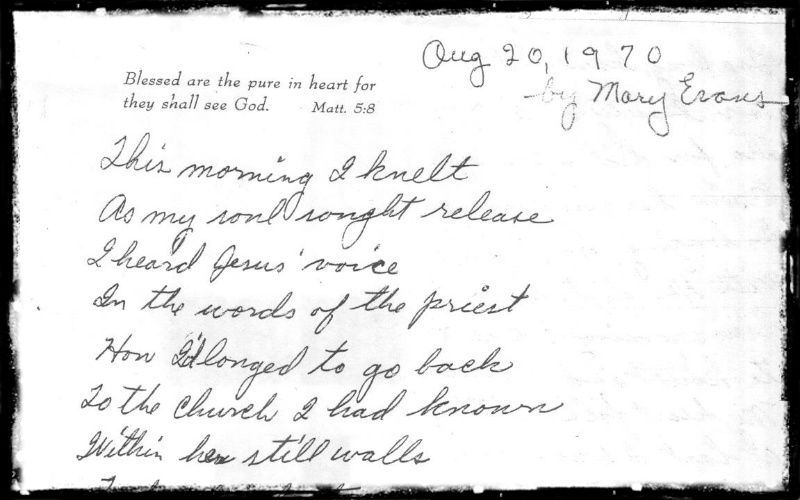 Aug 20, 1970
by Mary Evans
Blessed are the pure in heart for
they shall see God. Matt. 5:8
This morning I knelt
As my soul sought release
I heard Jesus' voice
In the words of the priest
How I'd longed to go back
To the church I had known
Within her still walls